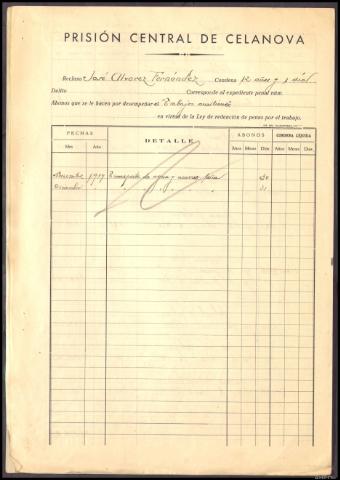 PRISIÓN CENTRAL DE CELANOVA
Recluso José Alvarez Fernández Condena 12 años y 1 día
Delito Corresponde al expediente penal núm.
Abonos que se le hacen por desempeñar el Trabajo
en virtud de la Ley de redención de penas por el trabajo.
FECHAS DETALLE ABONOS CONDENA LÍQUIDA
Mes Año Años Meses Días Años Meses Días
Noviembre y nuevas 30
Diciembre " " " " 31